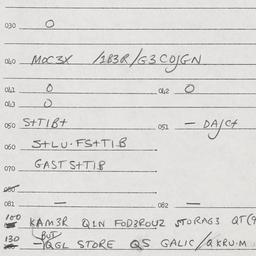 030 0
040 MOC3X /1B3R/G3COJGN
041 0 042 0
043 0
050 S+TIB+ 051 — DAJC+
060 S+LU·FS+TIB
070 GAST S+TIB
080
081 — 082 —
100 KAM3R Q1N FOD3ROUZ STORAG3 QT(9
BUT
130 QGL STORE QS GALIC/QKRU·M